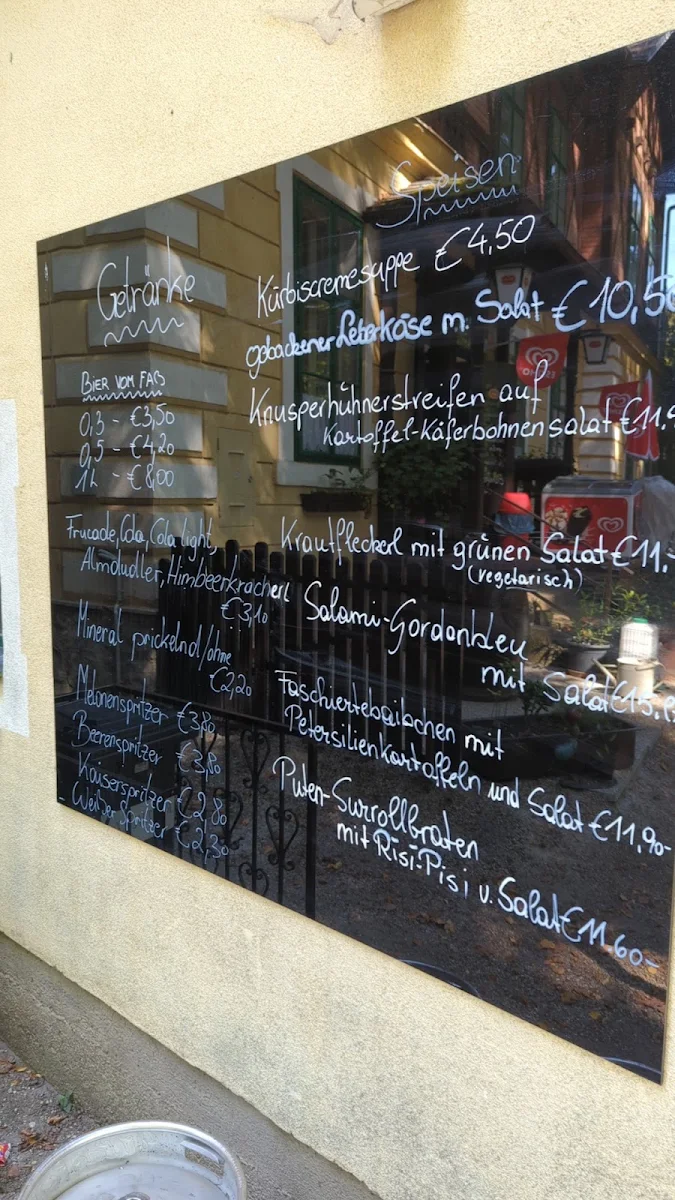 Getränke
BIER VOM FAß
0,3 - €3,50
0,5 - €4,20
1L - €8,00
Frucade, Cola, Cola light,
Almdudler, Himbeerkracherl
€3,10
Mineral prickelnd/ohne
€2,20
Melonenspritzer €3,80
Beerenspritzer €3,80
Kaiserspritzer €2,80
Weißer Spritzer €2,30
Speisen
Kürbiscremesuppe €4,50
gebackener Leberkäse m. Salat €10,50
Knusperhühnerstreifen auf
Kartoffel-Käferbohnensalat
Krautfleckerl mit grünen Salat €11.-
(vegetarisch)
Salami-Gordonbleu
mit Salat
Faschiertelaibchen mit
Petersilienkartoffeln und Salat €11,90-
Puten-Surrollbraten
mit Risi-Pisi u. Salat €11.60-